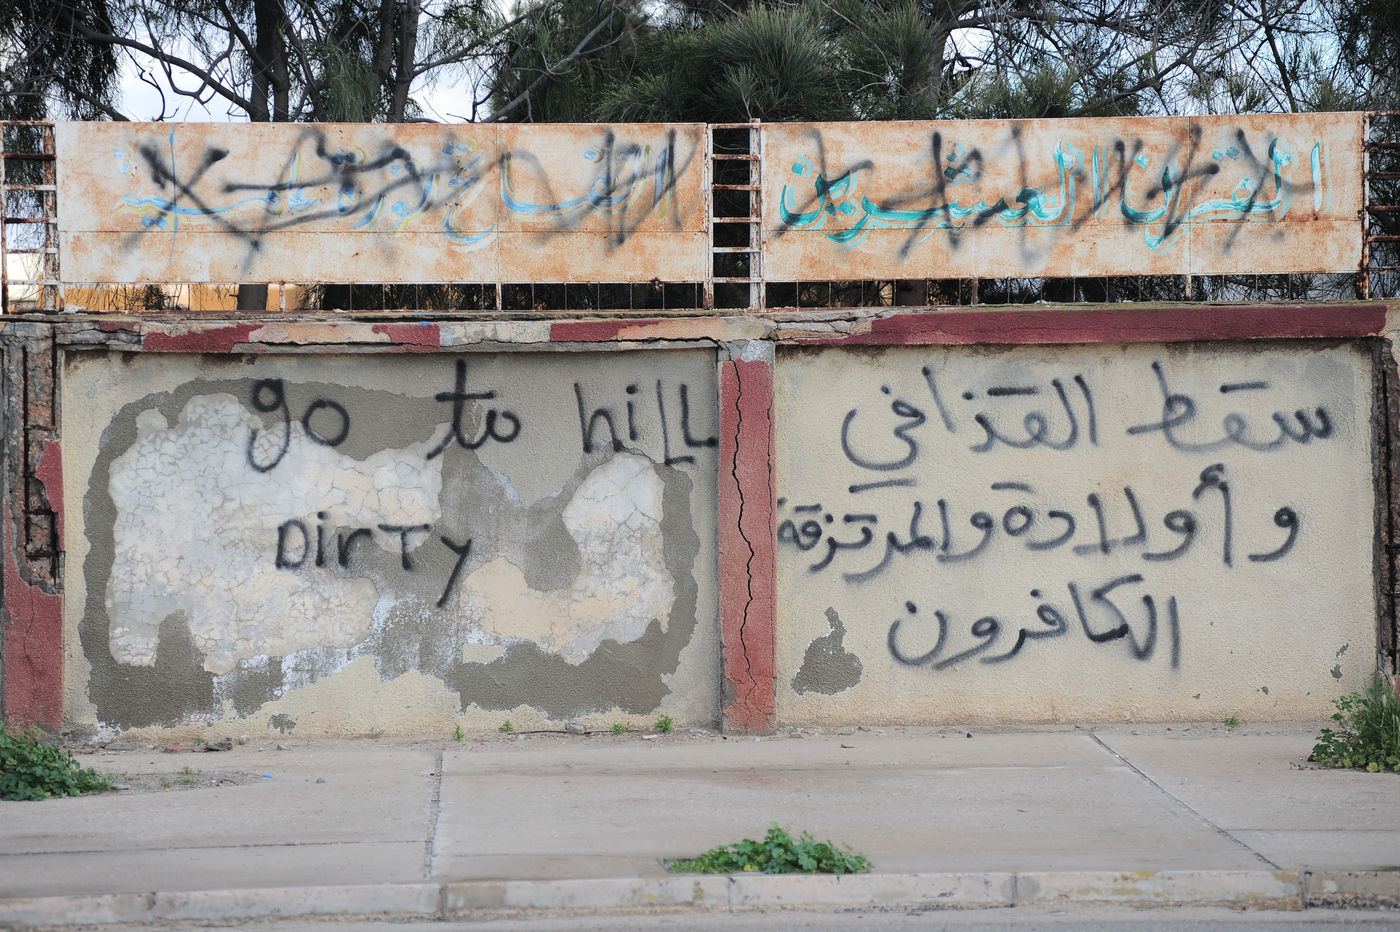 القرن العشرين
الفاتح لثورة عالمية
go to hill
Dirty
سقط القذافي
وأولاده والمرتزقة
الكافرون